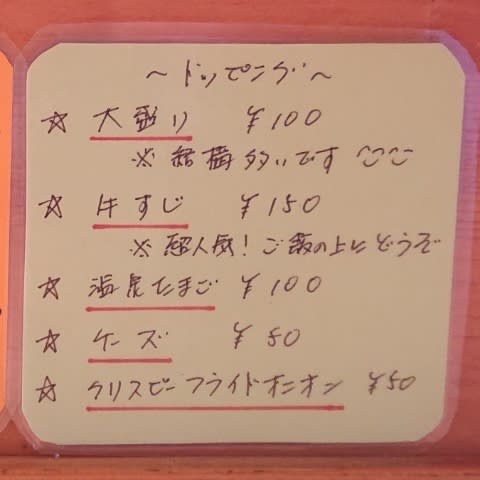 ～トッピング～
☆ 大盛り ¥100
※ 結構多いです
☆ 牛すじ ¥150
※ 超人気！ご飯の上にどうぞ
☆ 温泉たまご ¥100
☆ チーズ ¥50
☆ クリスピーフライドオニオン ¥50